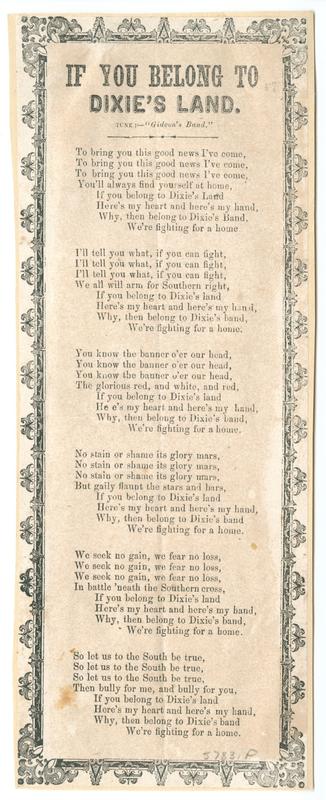 IF YOU BELONG TO
DIXIE'S LAND.
TUNE:—"Gideon's Band."
To bring you this good news I've come,
To bring you this good news I've come,
To bring you this good news I've come,
You'll always find yourself at home,
If you belong to Dixie's Land
Here's my heart and here's my hand,
Why, then belong to Dixie's Band,
We're fighting for a home
I'll tell you what, if you can fight,
I'll tell you what, if you can fight,
I'll tell you what, if you can fight,
We all will arm for Southern right,
If you belong to Dixie's land
Here's my heart and here's my hand,
Why, then belong to Dixie's band,
We're fighting for a home.
You know the banner o'er our head,
You know the banner o'er our head,
You know the banner o'er our head,
The glorious red, and white, and red,
If you belong to Dixie's land
He e's my heart and here's my hand,
Why, then belong to Dixie's band,
We're fighting for a home.
No stain or shame its glory mars,
No stain or shame its glory mars,
No stain or shame its glory mars,
But gaily flaunt the stars and bars,
If you belong to Dixie's land
Here's my heart and here's my hand,
Why, then belong to Dixie's band
We're fighting for a home.
We seek no gain, we fear no loss,
We seek no gain, we fear no loss,
We seek no gain, we fear no loss,
In battle 'neath the Southern cross,
If you belong to Dixie's land
Here's my heart and here's my hand,
Why, then belong to Dixie's band,
We're fighting for a home.
So let us to the South be true,
So let us to the South be true,
So let us to the South be true,
Then bully for me, and bully for you,
If you belong to Dixie's land
Here's my heart and here's my hand,
Why, then belong to Dixie's band
We're fighting for a home.